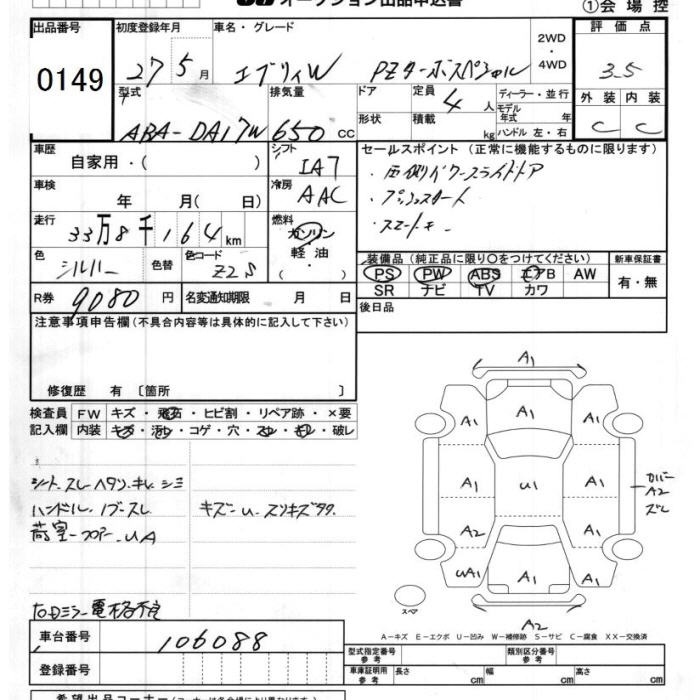 オークション出品申込書
①会場控
出品番号 初度登録年月 車名・グレード 2WD・4WD 評価点
0149 27 5月 エブリィW PZターボスペシャル 3.5
型式 排気量 ドア 定員 4人 ディーラー・並行 外装 内装
ABA-DA17W 650cc 形状 積載 kg モデル年式 年 ハンドル 左・右 C C
車歴 自家用・( ) シフト IA7 セールスポイント (正常に機能するものに限ります)
・両側パワースライドドア
車検 年 月( 日) 冷房 AAC ・プッシュスタート
走行 33万8千164km 燃料 ガソリン・軽油・( ) ・スマートキー
色 シルバー 色替 色コード Z2S
装備品 (純正品に限り○をつけてください) 新車保証書
PS PW ABS エアB AW 有・無
SR ナビ TV カワ
R券 9080円 名変通知期限 月 日 後日品
注意事項申告欄 (不具合内容等は具体的に記入して下さい)
修復歴 有 〔箇所 〕
検査員 FW キズ・飛石・ヒビ割・リペア跡・×要
記入欄 内装 キズ・汚れ・コゲ・穴・スレ・ ・破レ
シート スレ ヘタリ キレ シミ
ハンドル、ノブ スレ キズ ー U ー スリキズ多々
荷室ーフロアーUA
右Dミラー電格不良
A1
A1 A1 A1
A1 U1 A1 カバー A2 ズレ
A2 A1
UA1 A1 A1
スペア A2
A−キズ E−エクボ U−凹み W−補修跡 S−サビ C−腐食 XX−交換済
車台番号 106088
型式指定番号 参考 類別区分番号 参考
登録番号
車庫証明用 参考 長さ cm 幅 cm 高さ cm
希望出品コーナー